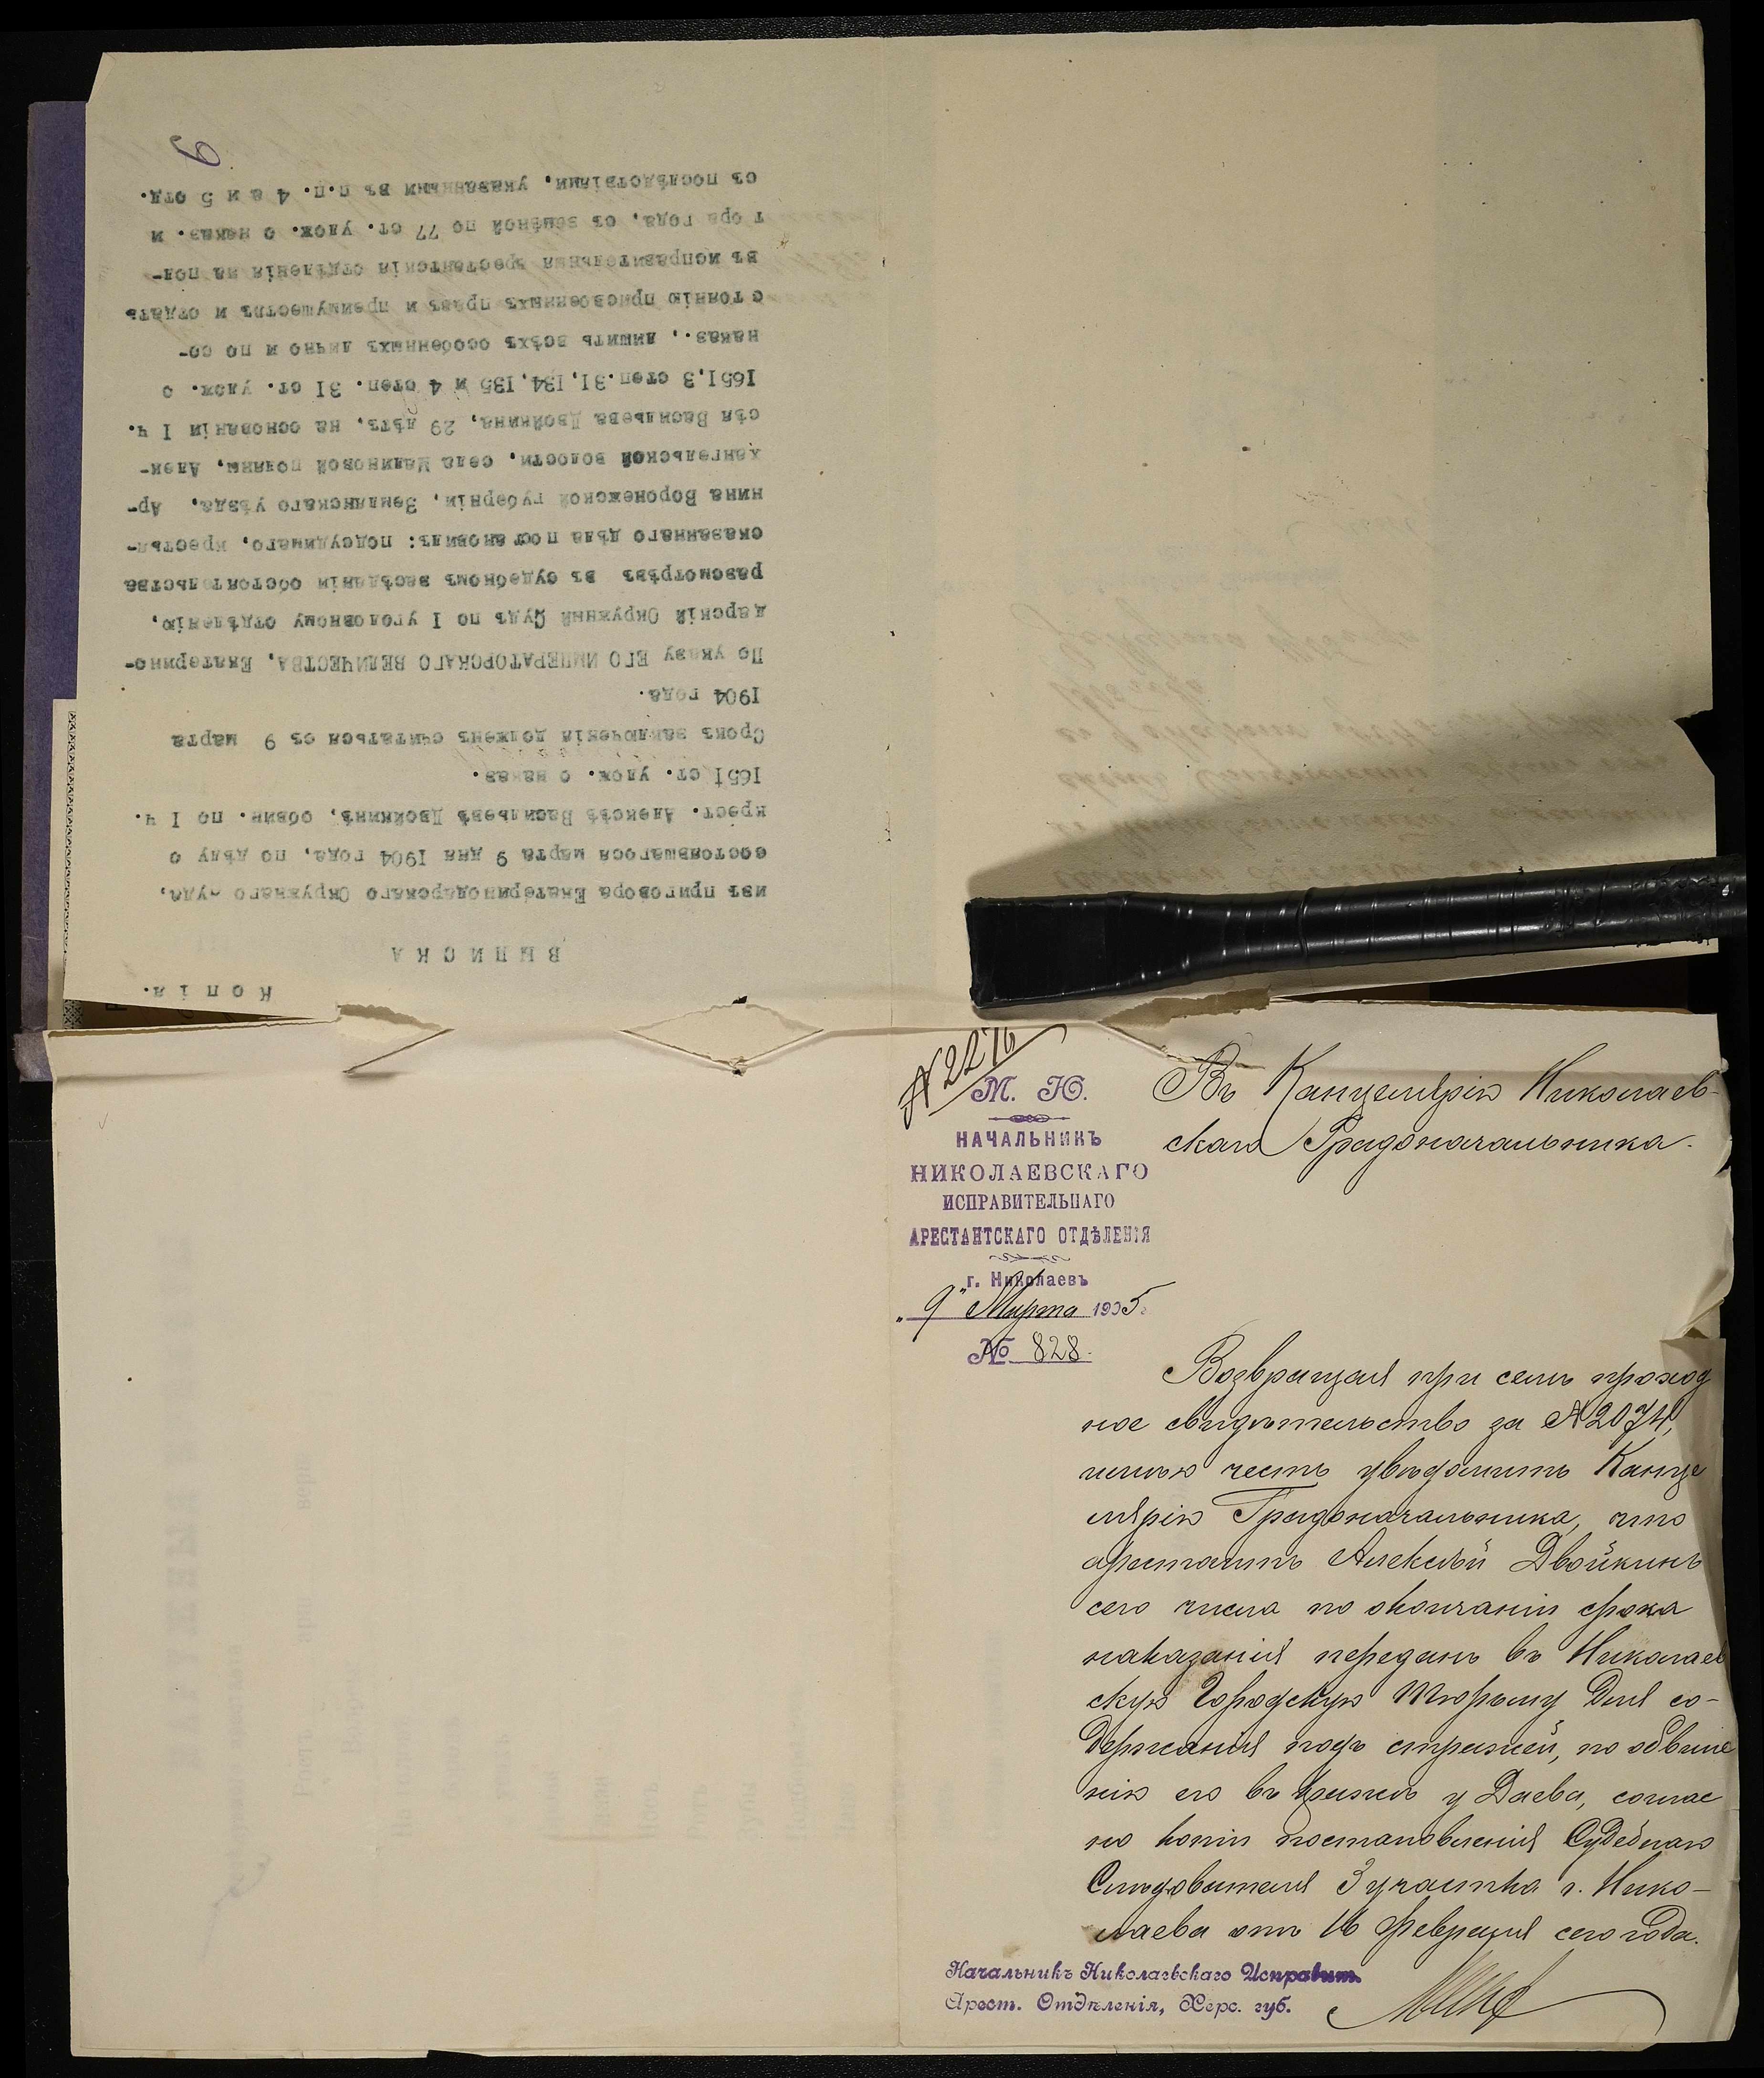 Копія.
ВЫПИСКА
изъ приговора Екатеринодарскаго Окружнаго Суда,
состоявшагося марта 9 дня 1904 года, по дѣлу о
крест. Алексѣѣ Васильевѣ Двойкинѣ, обвин. по I ч.
1651 ст. улож. о наказ.
Срокъ заключенія долженъ считаться съ 9 марта
1904 года.
По указу ЕГО ИМПЕРАТОРСКАГО ВЕЛИЧЕСТВА, Екатерино-
дарскій Окружный Судъ по I уголовному отдѣленію,
разсмотрѣвъ въ судебномъ засѣданіи обстоятельства
сказаннаго дѣла постановилъ: подсудимаго, крестья-
нина Воронежской губерніи, Землянскаго уѣзда, Ар-
хангельской волости, села Малиновой поляны, Алек-
сѣя Васильева Двойкина, 29 лѣтъ, на основаніи I ч.
1651,3 степ.31,134,135 и 4 степ. 31 ст. улож. о
наказ., лишить всѣхъ особенныхъ лично и по со-
стоянію присвоенныхъ правъ и преимуществъ и отдать
въ исправительныя арестантскія отдѣленія на пол-
тора года, съ замѣной по 77 ст. улож. о наказ. и
съ послѣдствіями, указанными въ п.п. 4 а и 5 отд.
№ 2276
М. Ю.
НАЧАЛЬНИКЪ
НИКОЛАЕВСКАГО
ИСПРАВИТЕЛЬНАГО
АРЕСТАНТСКАГО ОТДѢЛЕНІЯ
г. Николаевъ
„9" Марта 1905 г.
№ 828.
Въ Канцелярію Николаев-
скаго Градоначальника.
Возвращая при семъ проход
ное свидѣтельство за № 2074,
имѣю честь увѣдомить Канце
лярію Градоначальника, что
арестантъ Алексѣй Двойкинъ
сего числа по окончаніи срока
наказанія переданъ въ Николаев
скую Городскую Тюрьму для со-
держанія подъ стражей, по обвине
нію его въ кражѣ у Даева, соглас
но копіи постановленія Судебнаго
Слѣдователя 3 участка г. Нико-
лаева отъ 16 февраля сего года.
Начальникъ Николаевскаго Исправит.
Арест. Отдѣленія, Херс. губ.